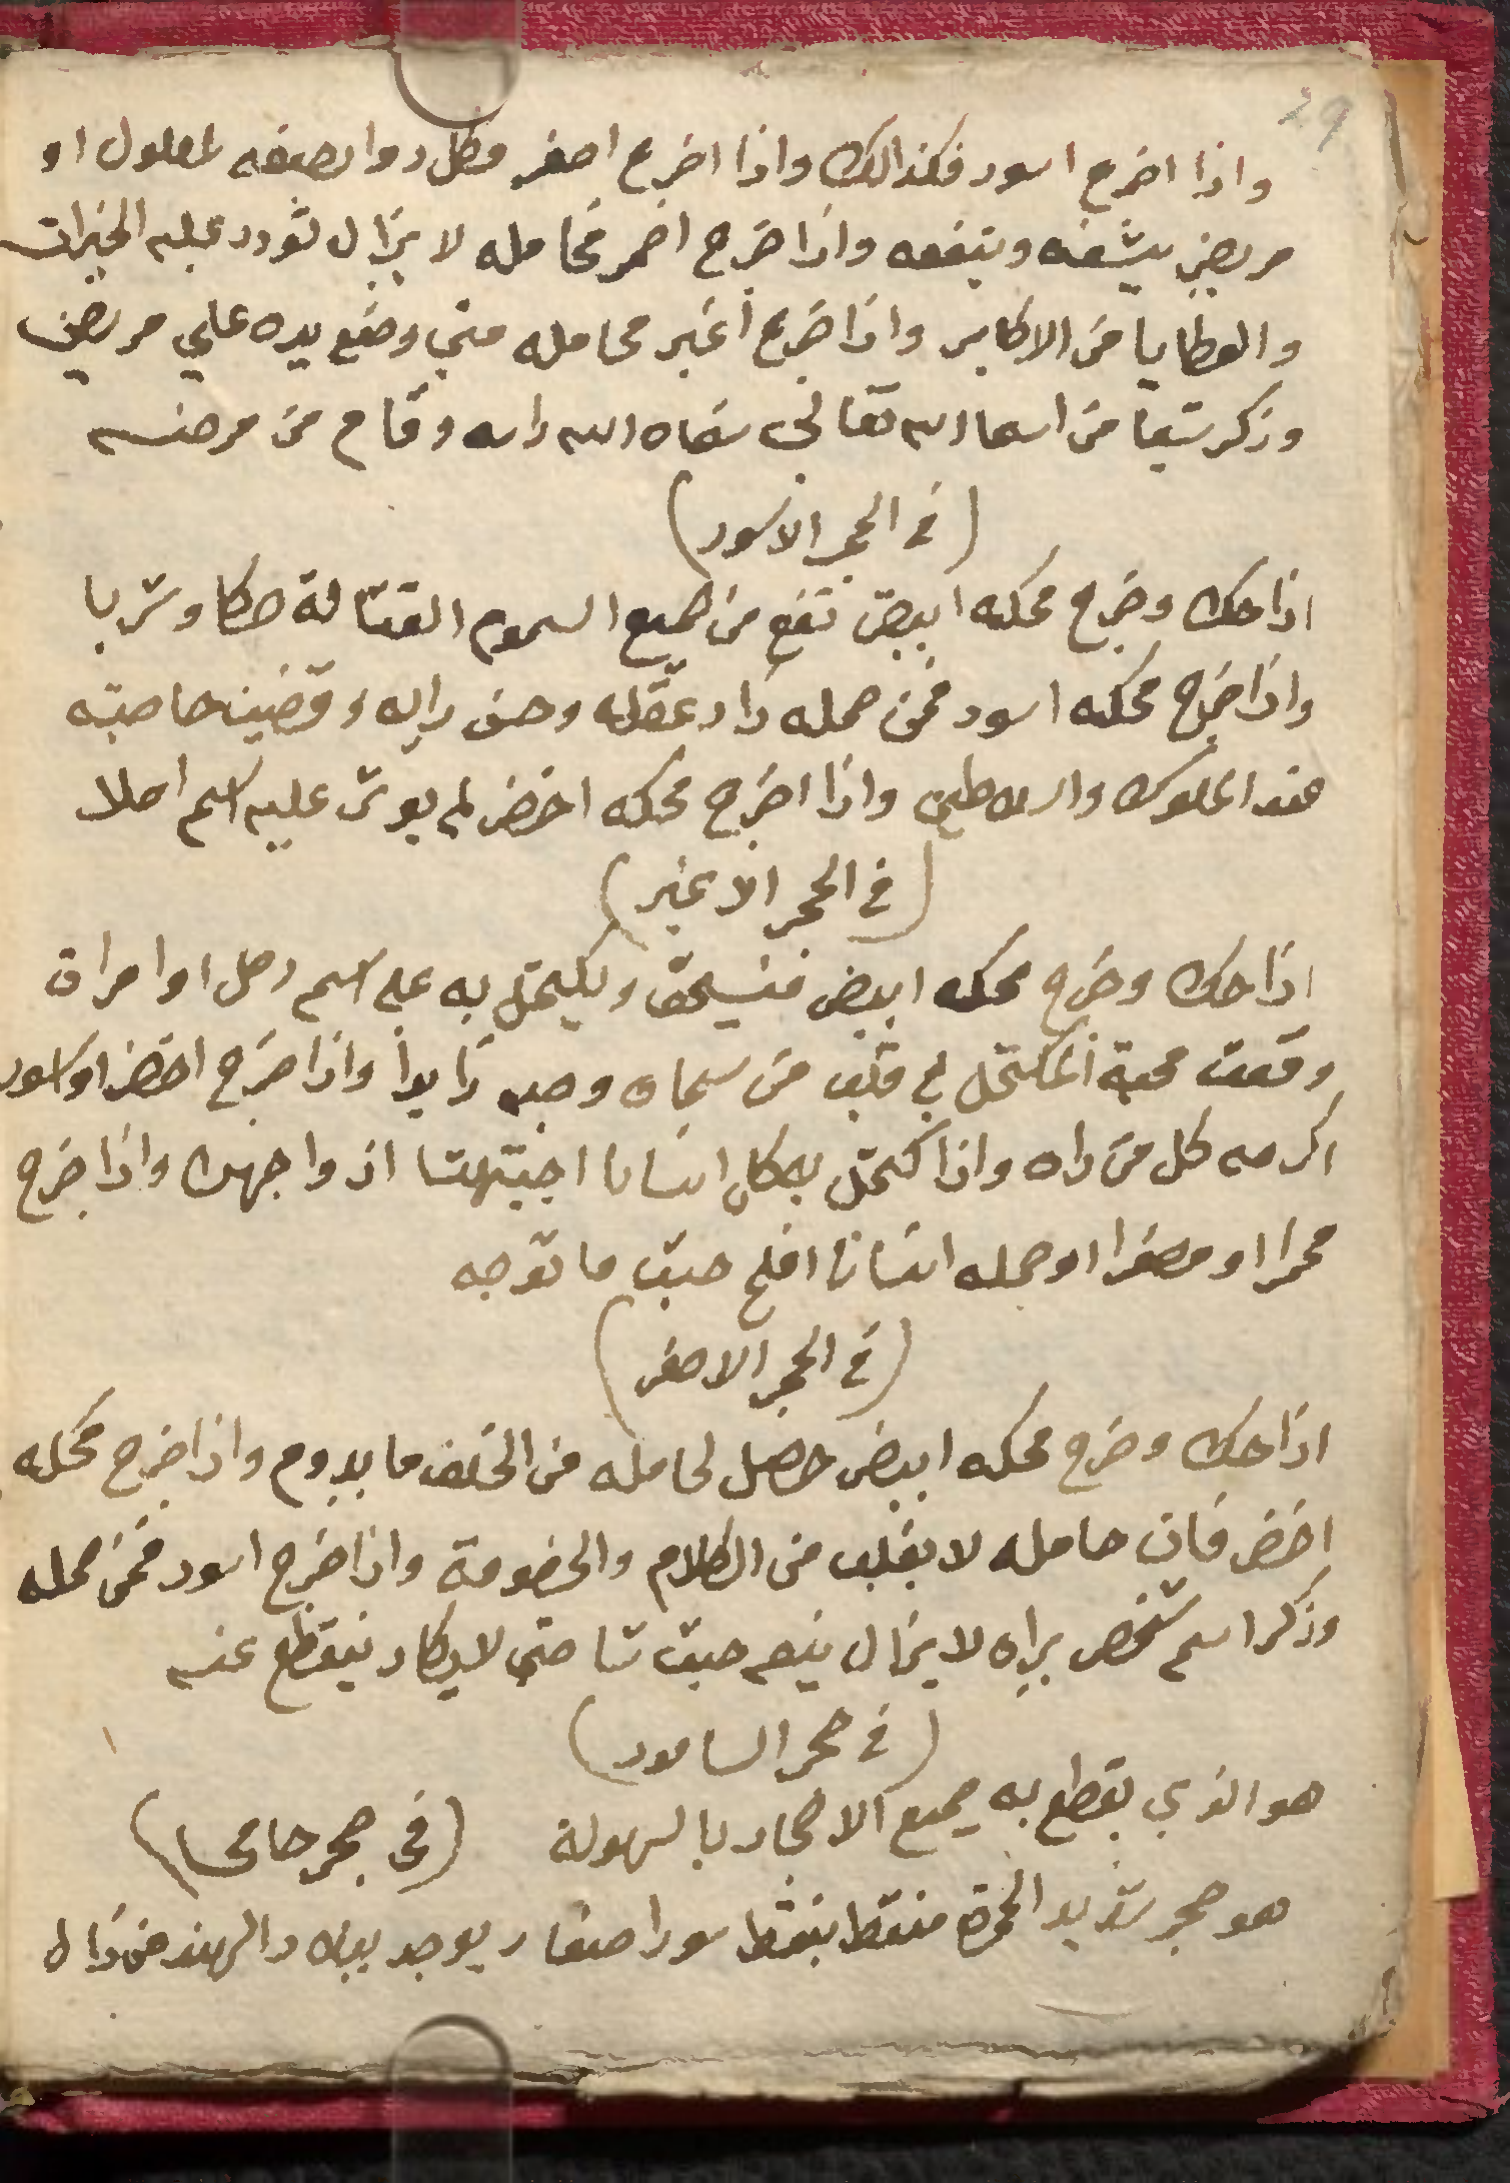 29
واذا اخرج اسود فكذالك واذا اخرج اصفر فكل دوا يصيفه لمعلول او
مريض يشفه وينفعه واذا خرج احمر فحامله لا يزال تورد عليه الخيرات
والعطايا من الاكابر واذا خرج اغبر فحامله متي وضع يده علي مريض
وذكر شيا من اسما الله تعالي شفاه الله وقام من مرضه
(في الحجر الاسود)
اذا حك وخرج محكه ابيض نفع من جميع السموم القتالة حكا وشربا
واذا خرج محكه اسود فمن حمله زاد عقله وحسن رايه وقضيت حاجته
عند الملوك والسلاطين واذا اخرج محكه اخضر لم يوثر عليه اسم اصلا
(في الحجر الاغبر)
اذا حك وخرج محكه ابيض فيسحق ويكتحل به علي اسم رجل او امراة
وقعت محبة المكتحل في قلب من سماه وحبه زايدا واذا خرج اخضر او اسود
اكرمه كل من راه واذا اكتحل به كل انسانا واذا خرج
محمرا او مصفرا او حمله انسانا افلح حيث ما توجه
(في الحجر الاصفر)
اذا حك وخرج محكه ابيض حصل لحامله من الخلف ما يدوم واذا خرج محكه
اخضر فان حامله لا يغلب من الكلام والخصومة واذا خرج اسود فمن حمله
وذكر اسم شخص يراه لا يزال يتبعه حيث شا حتي لا يكاد ينقطع عنه
(في حجر السامور)
هو الذي يقطع به جميع الاحجار بالسهولة (في حجر حامي)
هو حجر شديد الحمرة منقط بنقط سودا صغار يوجد ببلاد الهند من زال